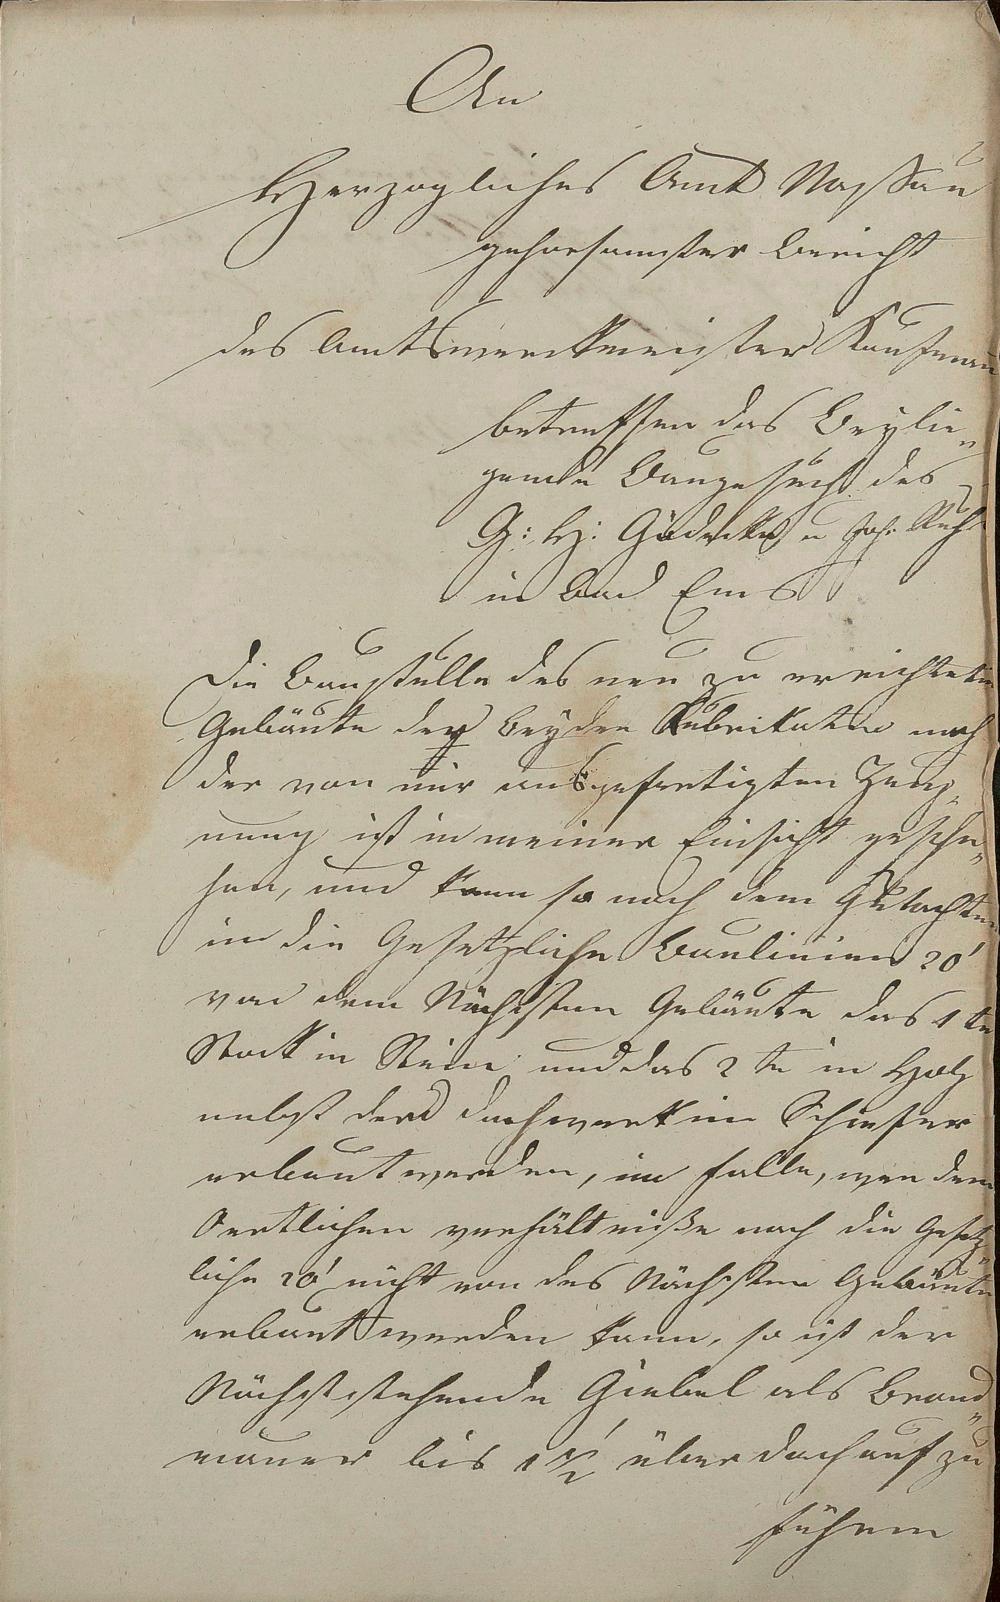 An
Herzogliches Amt Nassau
gehorsamster Bericht
des Amtswerkmeister Kaufmann
betreffen das Beylie„
gende Baugesuch des
G: H: Gödecke u Joh. Ruhl
in Bad Ems
Die Baustelle des neu zu erreichteten
Gebäute der beyden Rubrikaten nach
der von mir ausgefertigten Zeug„
nung ist in meiner Einsicht gesche„
hen, und kann so nach dem Gutachten
in die Gesetzliche Baulinien 20'
von dem Nächsten Gebäute das 1te
Stock in Stein und das 2te in Holz
nebst dem dachwerk in Schiefer
erbaut werden, im falle, wen dem
Oertlichen verhältniße nach die Gesetz„
liche 20' nicht von des Nächsten Gebäute
erbaut werden kann, so ist der
Nächststehende Giebel als Brand„
mauer bis 1 1/2' über dach auf zu
führen